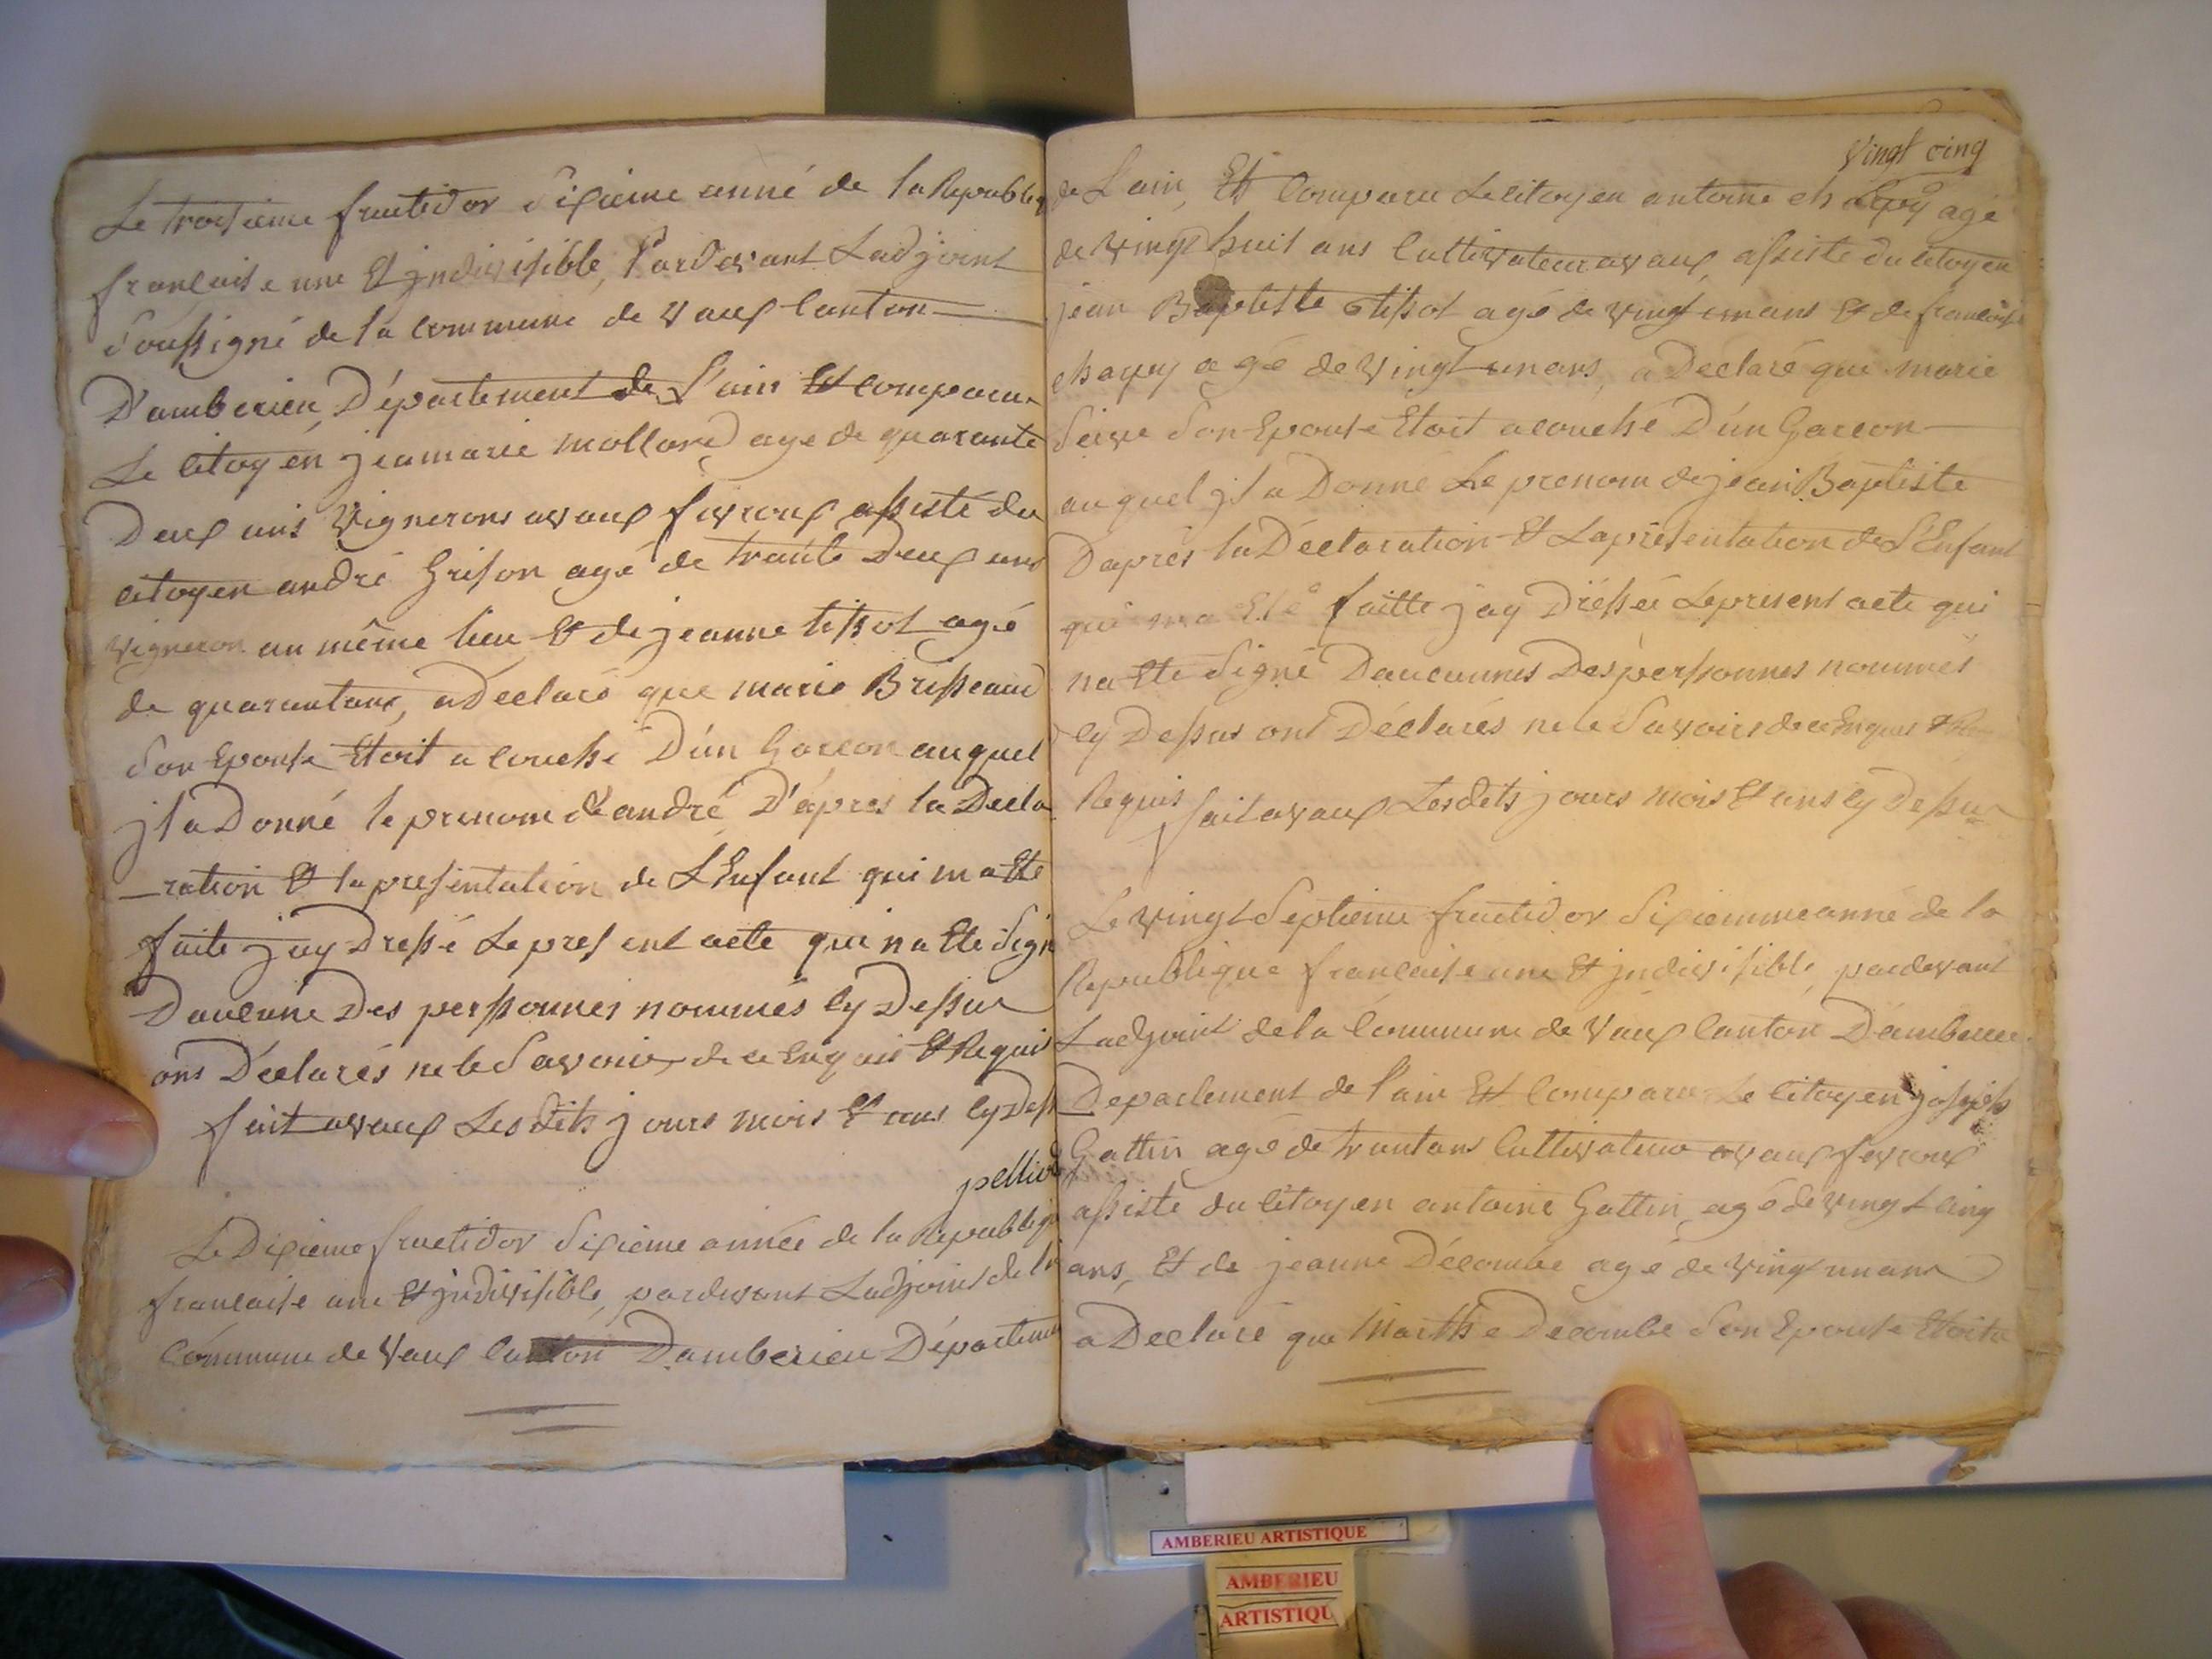 Le troisieme fructidor Sixieme anné de la Republiq
francaise une Et jndivisible, Pardevant Ladjoint
Soussigné de la commune de vaux Canton
D'amberieu, Département de L'ain Et comparu
Le Citoyen jeamarie mollard agé de quarante
Deux ans Vignerons avaux fevroux assisté du
citoyen andré Grison agé de trante Deux ans
vigneron au même lieu Et de jeanne tissot agé
de quarantans, a Declaré que marie Brisseaud
Son Epouse Etoit acouché D'un Garcon auquel
jl a Donné le prenom de andré D'apres la Decla
ration Et la presentation de L'Enfant qui ma Ete
faite jay Dressé Le present acte qui na Ete Sign
Daucune Des perssonnes nommés Cy Dessus
ons Déclarés ne le Savoir de ce Enquis Et Requis
fait avaux Les dits jours mois Et ans Cy Dess

Le Dixieme fructidor Sixieme année de la Republiq
francaise une Et jndivisible, pardevant Ladjoint de la
Commune de Vaux Canton Damberieu Départemen
Vingt cinq
de L'ain, Et Comparu Le citoyen antoine chapuy agé
de vingt huit ans Cultivateur avaux, assiste du citoyen
jean Baptiste tissot agé de vingt un ans Et de francoise
chapuy agé de vingt un ans, a Déclaré que marie
Seive Son Epouse Etoit acouché D'un Garcon
auquel jl a Donné Le prenom de jean Baptiste
Dapres la Déclaration Et La présentation de L'Enfant
qui ma Eté faitte jay Dréssée Le present acte qui
na Ete Signé Daucunnes Des perssonnes nommés
Cy Dessus ont Déclarés ne le Savoirs de ce Enquis Et
Requis fait avaux Les dits jours mois Et ans Cy Dessus
Le vingt Septieme fructidor Sixiemme anné de la
Republique francaise une Et jndivisible, pardevant
Ladjoint de la Commune de Vaux Canton D'amberieu
Departement de l'ain Et Comparu Le Citoyen joseph
Gattin agé de trantans Cultivateur avaux fevroux
assiste du Citoyen antoine Gattin agé de vingt Cinq
ans, Et de jeanne Décombe agé de vingt un ans
a Declaré que Marthe Decombe Son Epouse Etoit a
AMBERIEU ARTISTIQUE
AMBERIEU
ARTISTIQU